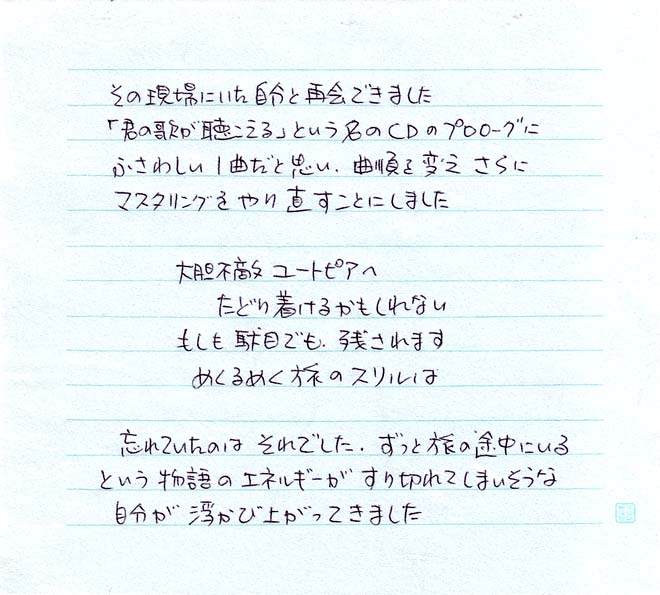 その現場にいた自分と再会できました
「君の歌が聴こえる」という名のCDのプロローグに
ふさわしい1曲だと思い、曲順を変え さらに
マスタリングをやり直すことにしました
大胆不敵 ユートピアへ
たどり着けるかもしれない
もしも駄目でも、残されます
めくるめく旅のスリルは
忘れていたのは それでした。ずっと旅の途中にいる
という物語のエネルギーが すり切れてしまいそうな
自分が 浮かび上がってきました